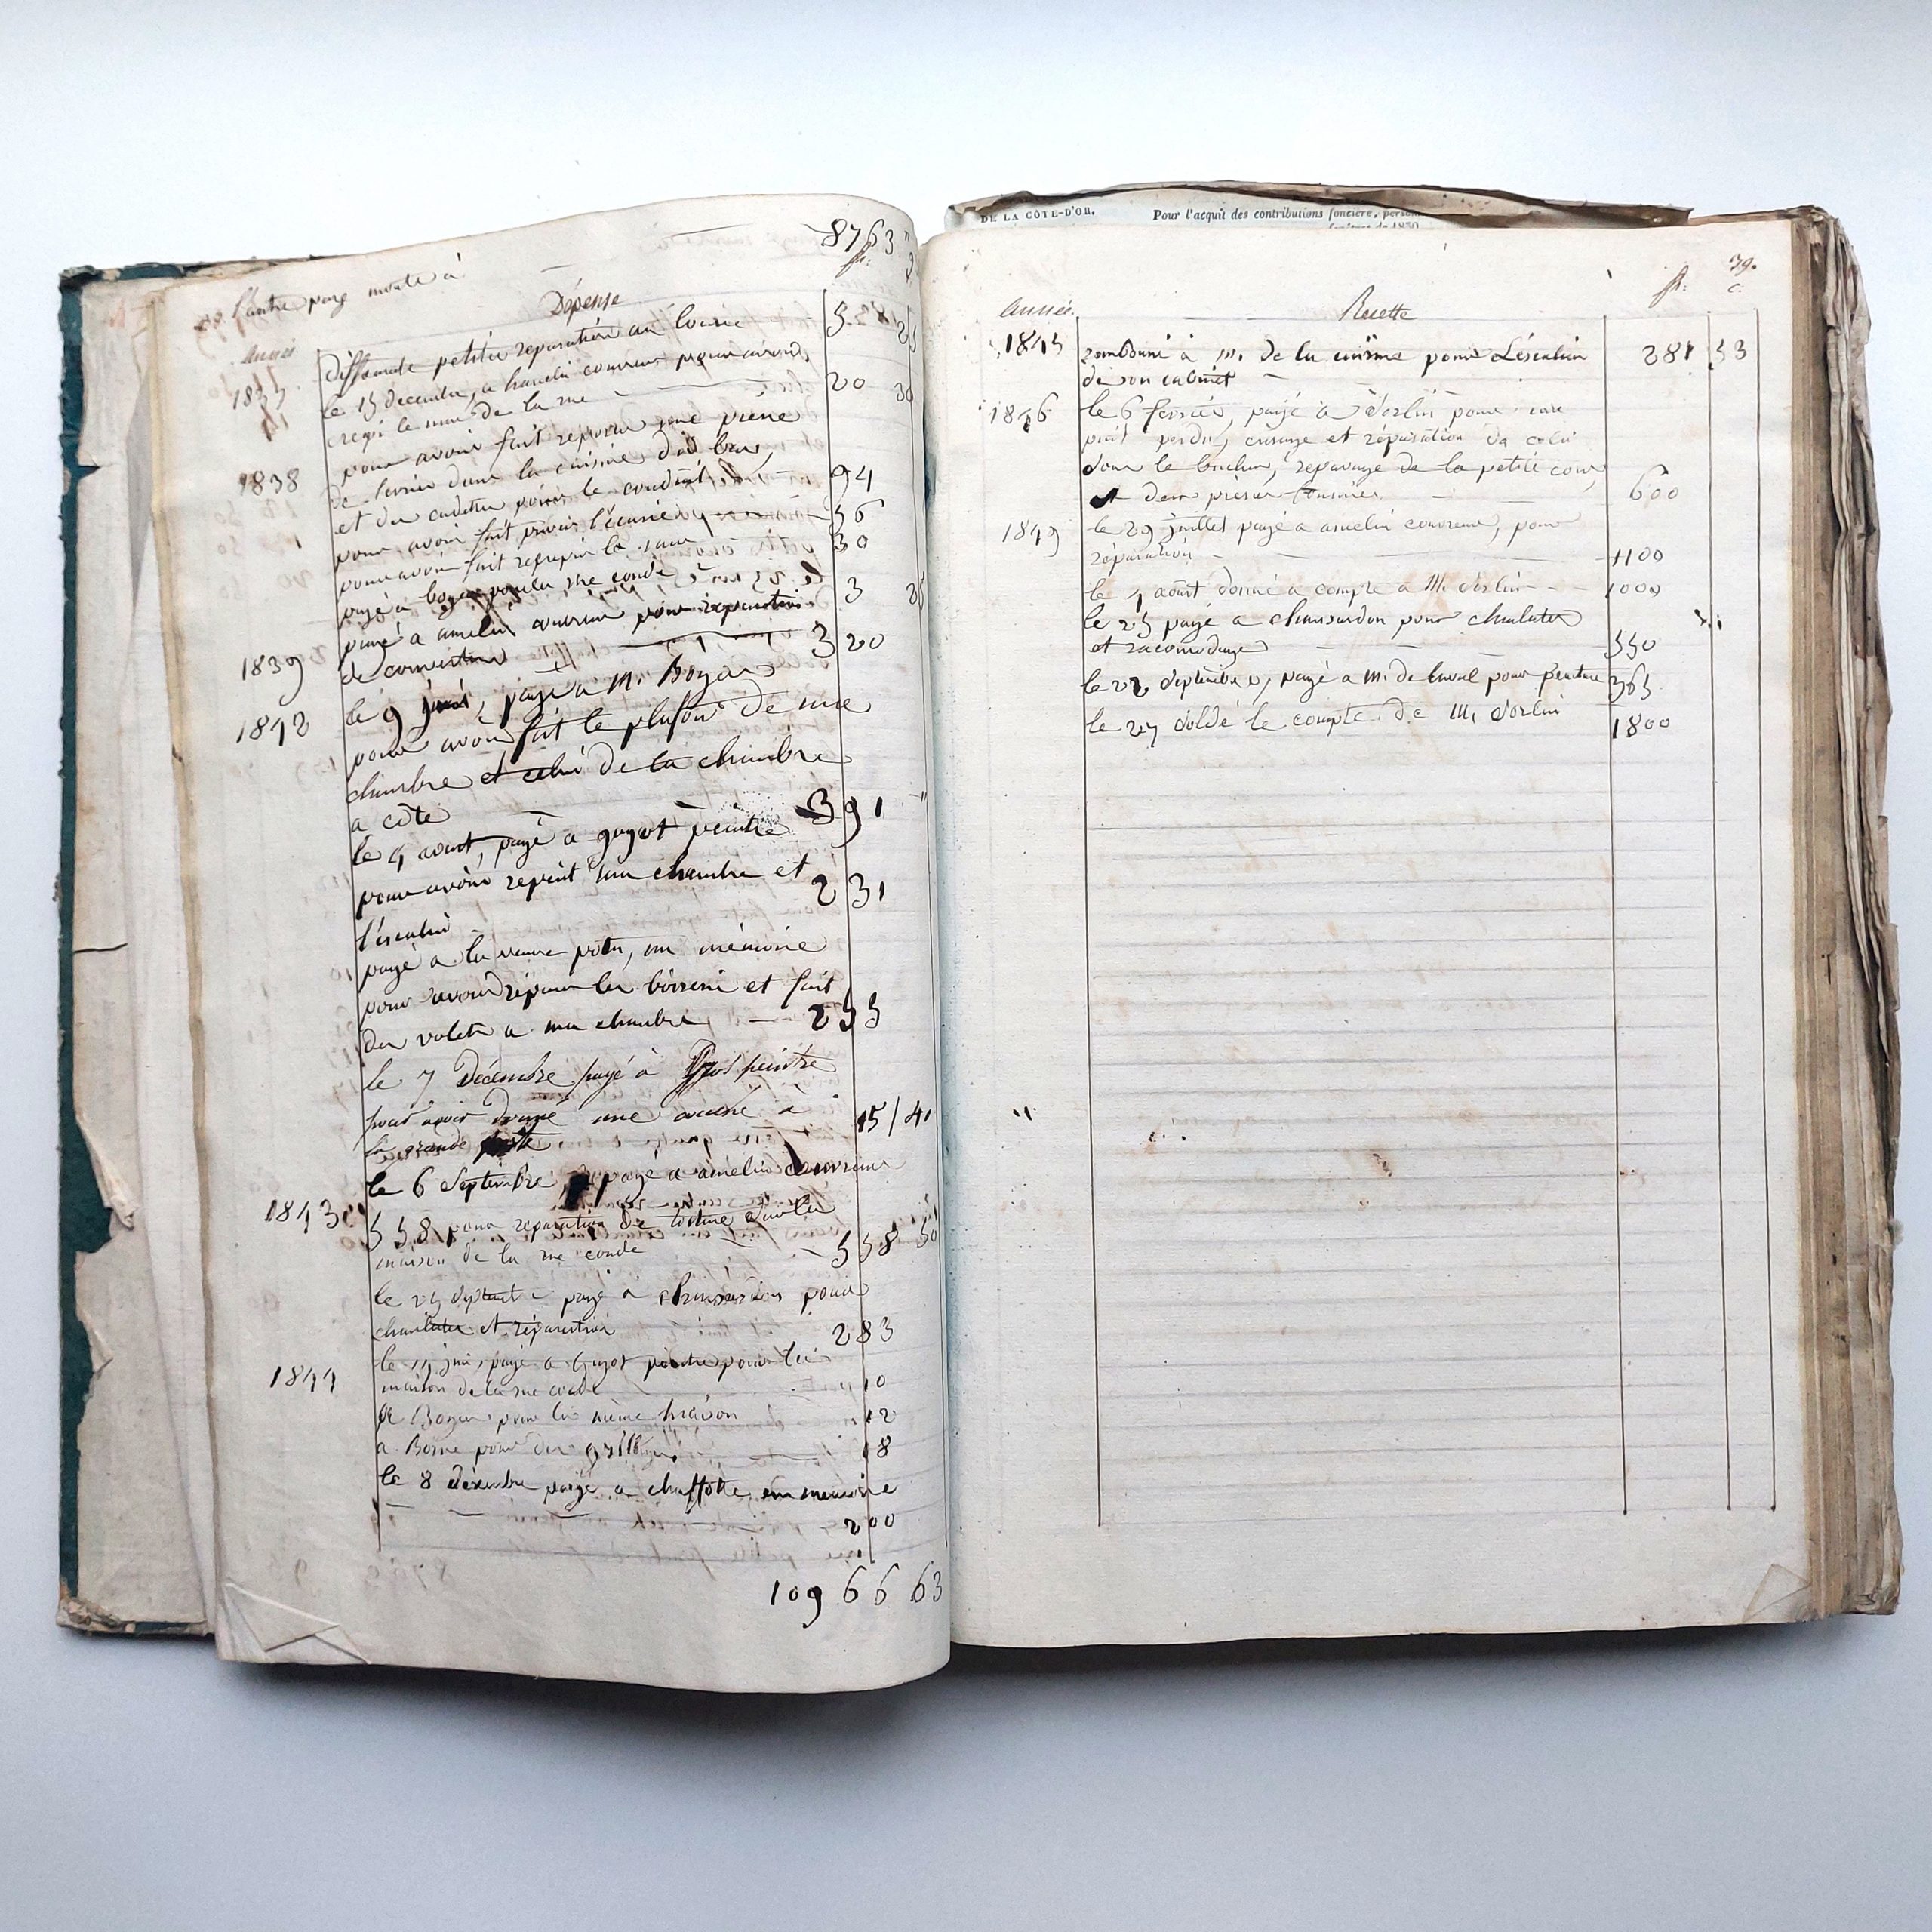 l'autre page monte à 8763 "
fr:
Dépense
année
différente petite reparation au louvic 5 25
1835 le 15 decembre, a hamelin couvreur pour avoir
crepi le mur de la rue 20 30
pour avoir fait reposer une pierre
1838 de levrier dans la cuisine d'en bas,
et du cadette pour le conduit 94
pour avoir fait l'écurie 56
pour avoir fait recrepir la 30
payé a boyer rue condé 3
1839 payé a amelin couvreur pour reparation
de couverture 3 20
1842 le 9 payé a M. Boyer
pour avoir fait le plafon de une
chambre et celui de la chambre
a côté 391 "
le 4 aout, payé a guyot peintre
pour avoir repeint ma chambre et 231
l'escalier
payé a la veuve un mémoire
pour avoir réparer les boiserie et fait
des volets a ma chambre 255
le 7 Décembre payé à peintre
pour avoir donné une à
la grande porte 15 / 41
1843 le 6 Septembre, payé a amelin couvreur
558 pour reparation de toiture sur la
maison de la rue condé 558 50
le 25 septembre payé a chaussardon pour
et réparation 283
1844 le payé a Guyot peintre pour la
maison de la rue condé 10
a Boyer pour la même maison 12
a Borne pour des grillages 18
le 8 décembre payé a chaffotte un memoire
200
109 66 63
DE LA CÔTE-D'OR. Pour l'acquit des contributions foncière,
39.
année. Recette fr: c.
1845 à M. de la cuisine pour L'éscalier 281 53
de son cabinet
1846 le 6 fevrier, payé à Sorlin pour
puit perdu, curage et réparation de celui
dans le bucher, repavage de la petite cour,
et deux pierres fournies 600
1849 le 29 juillet payé a amelin couvreur, pour
réparation 1100
le 4 aout donné a compte a M. Sorlin 1000
le 25 payé a chaussardon pour chaulates
et racomodages 550
le 22 Septembre, payé a M. de laval pour peinture 365
le 27 soldé le compte de M. Sorlin 1800